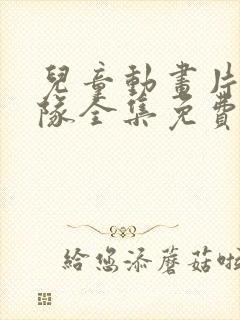 兒童動畫片
隊全集免費
給您添蘑菇啦